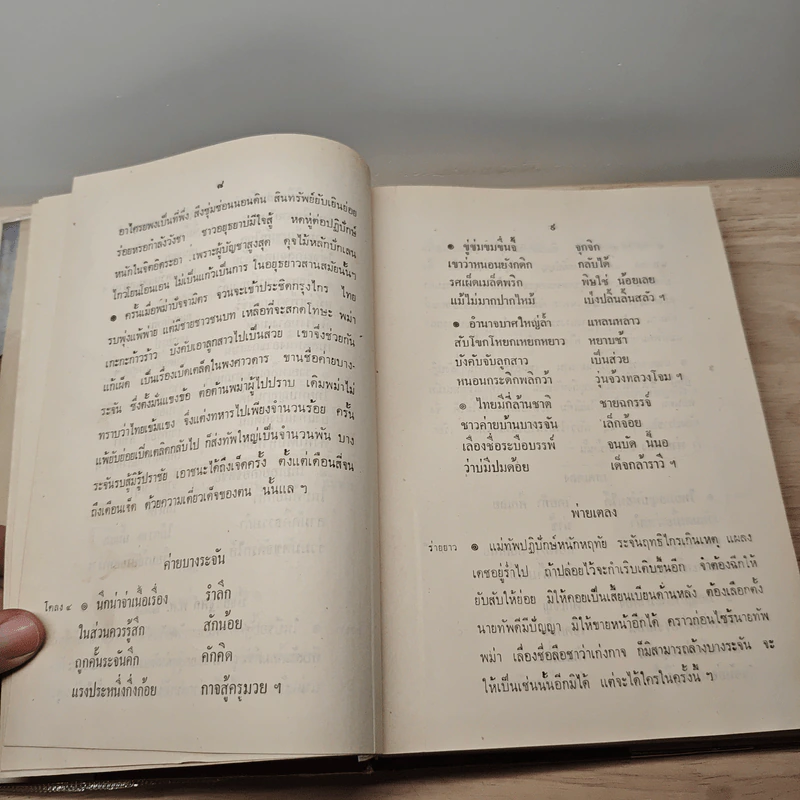 ๘
อาโครยพงเป็นที่พึ่ง สึงซุ่มซ่อนนอนดิน สินทรัพย์ยับเยินย่อย
ร่อยหรอกำลังวังชา ชาวอยุธยาบ่มีใจสู้ หดหู่ต่อปฏิปักษ์
หนักในจิตอิดระอา เพราะผู้บัญชาสูงสุด ดุจไม้หลักปักเลน
ไกวโอนโอนเอน ไม่เป็นแก้วเป็นการ ในอยุธยาวสานสมัยนั้นฯ
๏ ครั้นเมื่อพม่าปัจจามิตร จวนจะเข้าประชิดกรุงไกร ไทย
รบพุ่งแพ้พ่าย แต่มีชายชาวชนบท เหลือที่จะสกดโทษะ พม่า
เกะกะก้าวร้าว บังคับเอาลูกสาวไปเป็นส่วย เขาจึงช่วยกัน
แก้เผ็ด เป็นเรื่องเบ็ดเตล็ดในพงศาวดาร ขานชื่อค่ายบาง-
ระจัน ซึ่งตั้งมั่นแขงข้อ ต่อต้านพม่าผู้ไปปราบ เดิมพม่าไม่
ทราบว่าไทยเข้มแขง จึ่งแต่งทหารไปเพียงจำนวนร้อย ครั้น
แพ้ยับย่อยเบ็ดเตล็ดกลับไป ก็ส่งทัพใหญ่เป็นจำนวนพัน บาง
ระจันรบสู้มิรู้ปราชัย เอาชนะได้ถึงเจ็ดครั้ง ตั้งแต่เดือนสี่จน
ถึงเดือนเจ็ด ด้วยความเดี่ยวเด็จของตน นั้นแล ฯ
ค่ายบางระจัน
โคลง ๔ ๏ นึกน่าจำเนื้อเรื่อง รำลึก
ในส่วนควรรู้สึก สักน้อย
ถูกคั้นระจันคึก คักคิด
แรงประหนึ่งกิ่งก้อย กาจสู้ครูมวย ฯ
๙
๏ ขู่ข่มขมขื่นจี้ จุกจิก
เขาว่าหนอนยังกดิก กลับได้
รศเผ็ดเมล็ดพริก พันใช่ น้อยเลย
แม้ไม่มากปากไหม้ เบ่งปลิ้นลิ้นสลัว ฯ
๏ อำนาจบาศใหญ่ล้ำ แหลนหลาว
สับโขกโหยกเหยกหยาว หยาบช้า
บังคับจับลูกสาว เป็นส่วย
หนอนกระดิกพลิกว้า วุ่นจ้วงทลวงโจม ฯ
๏ ไทยมีกี่ล้านชาติ ชายฉกรรจ์
ชาวค่ายบ้านบางรจัน เล็กจ้อย
เลื่องชื่อระบือบรรพ์ จนบัด นี้นอ
ว่าบ่มีปมด้อย เด็จกล้าราวี ฯ
พ่ายเตลง
ร่ายยาว ๏ แม่ทัพปฏิปักษ์หนักหฤทัย ระจันฤทธิไกรเกินเหตุ แผลง
เดชอยู่ร่ำไป ถ้าปล่อยไว้จะกำเริบเติบขึ้นอีก จำต้องฉีกให้
ยับสับให้ย่อย มิให้คอยเป็นเสี้ยนเบียนด้านหลัง ต้องเลือกตั้ง
นายทัพดีมีปัญญา มิให้ขายหน้าอีกได้ คราวก่อนไซร้นายทัพ
พม่า เลื่องชื่อลือชาว่าเก่งกาจ ก็มิสามารถล้างบางระจัน จะ
ให้เป็นเช่นนั้นอีกมิได้ แต่จะได้ใครในครั้งนี้ ฯ